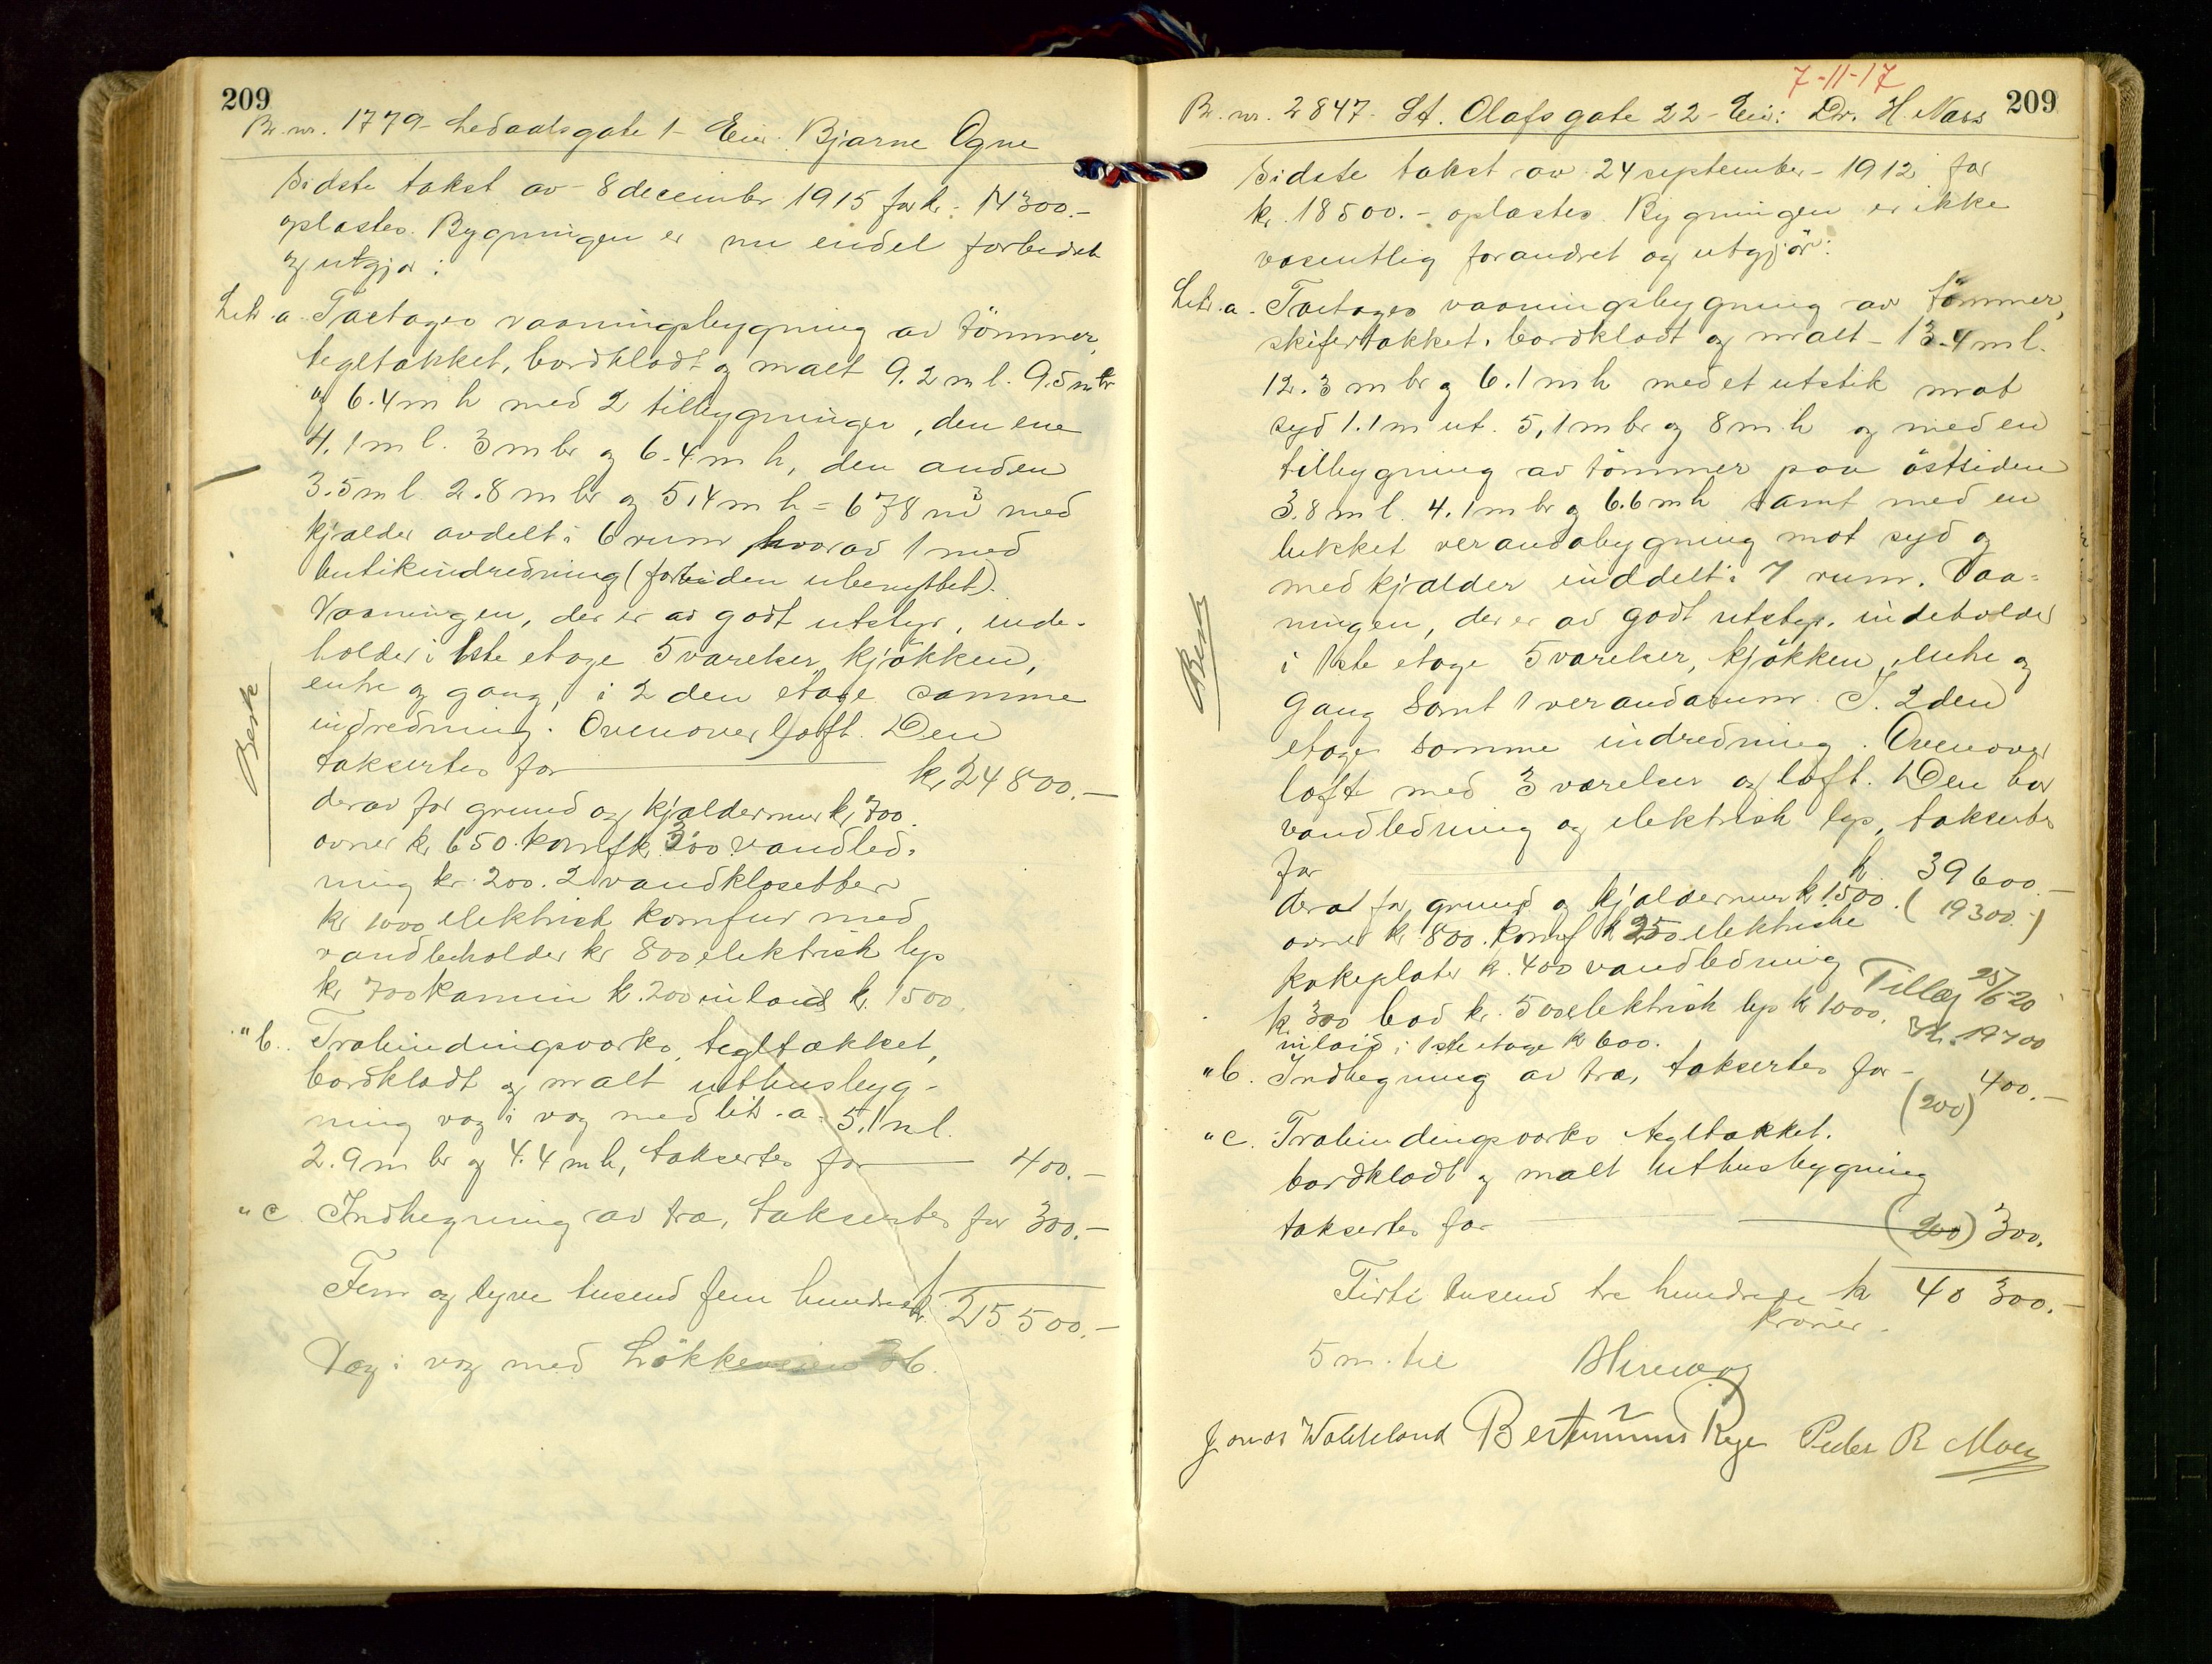 209
Br. nr. 1779 - Ledaalsgate 1 - Eier: Bjarne Ogne
Sidste takst av 8 december 1915 for kr. 14300.-
oplæstes. Bygningen er nu endel forbedret
og utgjør:
Litr. a. Toetages vaaningsbygning av tömmer,
tegltækket, bordklædt og malt 9.2 m l. 9.5 m br
og 6.4 m h med 2 tilbygninger, den ene
4.1 m l. 3 m br og 6.4 m h, den anden
3.5 m l. 2.8 m br og 5.4 m h = 678 m³ med
kjælder avdelt i 6 rum hvorav 1 med
butikindredning (fortiden ubenyttet).
Vaaningen, der er av godt utstyr, inde-
holder i 1ste etage 5 værelser, kjökken,
entre og gang, i 2den etage samme
indredning. Ovenover loft. Den
taksertes for kr. 24800.-
derav for grund og kjældermur kr. 700.
ovner kr 650. komf kr. 300 vandled-
ning kr. 200. 2 vandklosetter
kr 1000 elektrisk komfur med
vandbeholder kr 800 elektrisk lys
kr 700 kamin kr. 200 inlaid kr. 1500.
" b. Træbindingsverks, tegltækket,
bordklædt og malt uthusbyg-
ning væg i væg med litr. a. 5.1 m l.
2.9 m br og 4.4 m h, taksertes for 400.-
" c. Indhegning av træ, taksertes for 300.-
Fem og tyve tusend fem hundrede kr. 25500.-
Væg i væg med Lökkeveien 36.
Besk
7-11-17
209
Br. nr. 2847. St. Olafsgate 22 - Eier: Dr. H. Næss
Sidste takst av 24 september - 1912 for
kr. 18500.- oplæstes. Bygningen er ikke
væsentlig forandret og utgjör:
Litr. a. Toetages vaaningsbygning av tömmer,
skifertækket, bordklædt og malt - 13.4 m l.
12.3 m br og 6.1 m h med et utstik mot
syd 1.1 m ut. 5,1 m br og 8 m h og med en
tilbygning av tömmer paa östsiden
3.8 m l. 4.1 m br og 6.6 m h samt med en
lukket verandabygning mot syd og
med kjælder inddelt i 7 rum. Vaa-
ningen, der er av godt utstyr, indeholder
i 1ste etage 5 værelser, kjökken, entre og
gang samt 1 verandarum. I. 2den
etage samme indredning. Ovenover
loft med 3 værelser og loft. Den har
vandledning og elektrisk lys, taksertes
for kr. 39600.-
derav for grund og kjældermur kr 1500. (19300.-)
ovner kr 800. komf kr 250 elektriske
kokeplater kr. 400 vandledning
kr. 300 bad kr. 500 elektrisk lys kr 1000.
Tillæg 25/6-20
Kr. 19700
inlaid i 1ste etage kr 600.
" b. Indhegning av træ, taksertes for - 400.-
(200)
" c. Træbindingsverks tegltækket.
bordklædt og malt uthusbygning
taksertes for (200) 300.
Firti tusend tre hundrede kr 40 300.-
kroner.
5 m. til
Jonas Watteland Bertinius Rege Peder R Moen
Besk